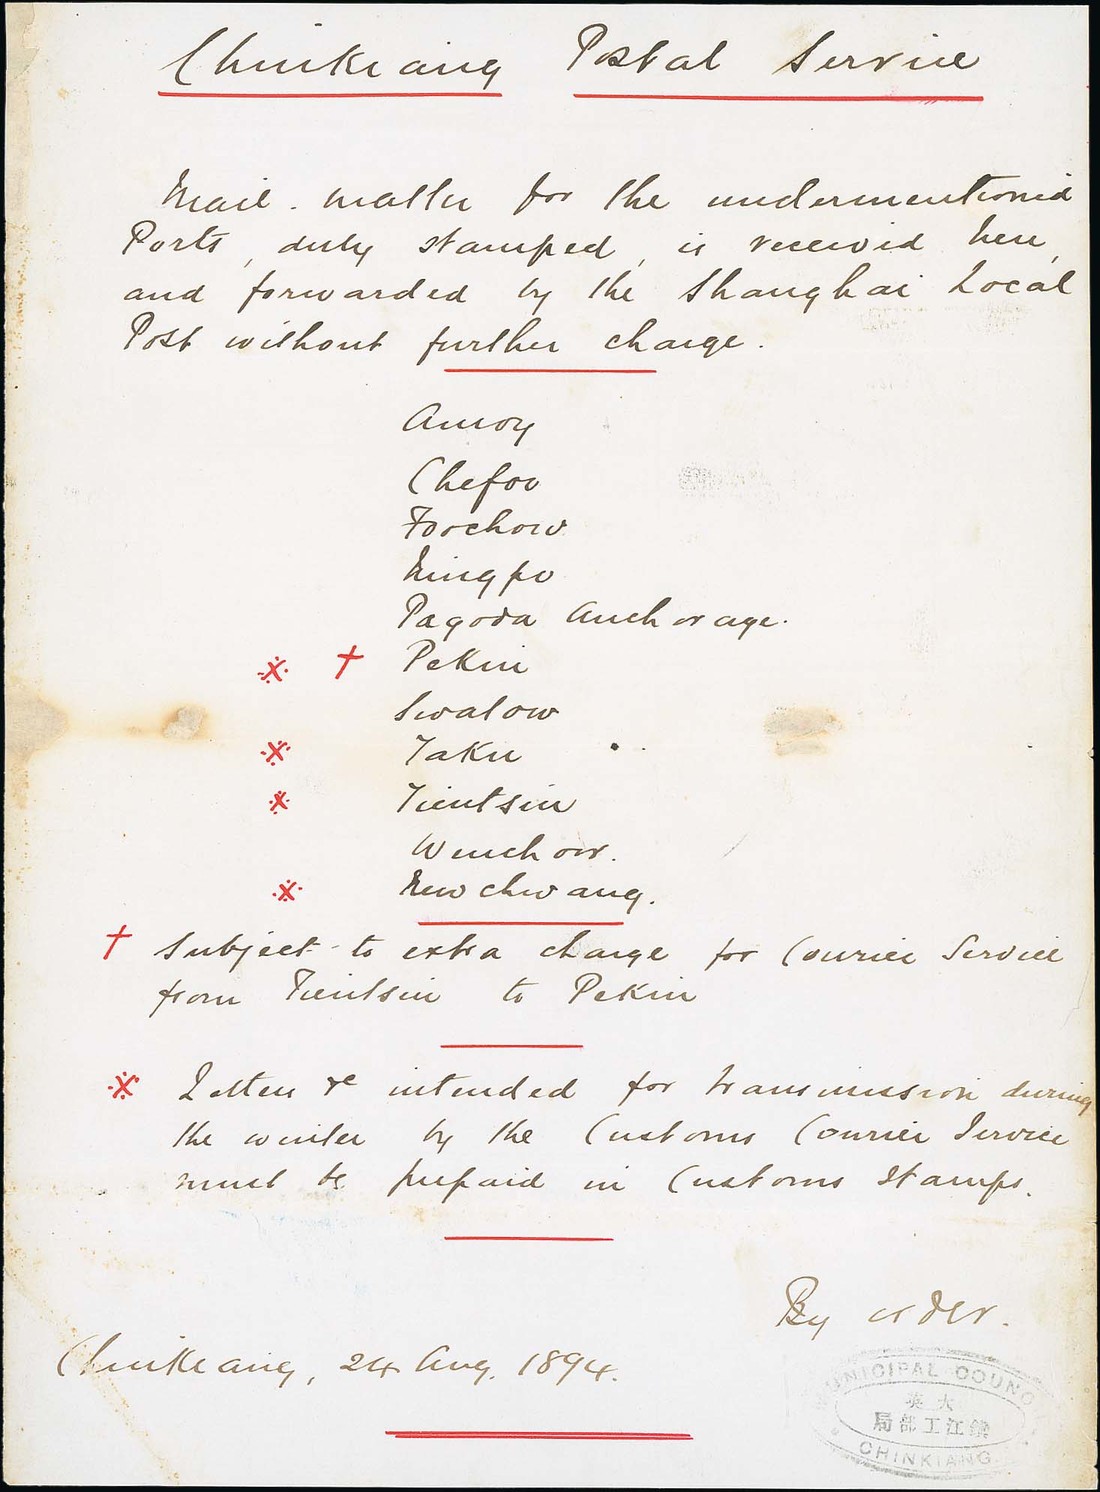 Chinkiang Postal Service
Mail matter for the undermentioned
Ports, duly stamped, is received here,
and forwarded by the Shanghai Local
Post without further charge.
Amoy
Chefoo
Foochow
Ningpo
Pagoda Anchorage.
※ † Pekin
Swatow
※ Taku
※ Tientsin
Wenchow.
※ Newchwang.
† Subject to extra charge for Courier Service
from Tientsin to Pekin
※ Letters &c intended for transmission during
the winter by the Customs Courier Service
must be prepaid in Customs Stamps.
By order.
Chinkiang, 24 Aug. 1894.
MUNICIPAL COUNC
英大
局部工江鎮
CHINKIANG